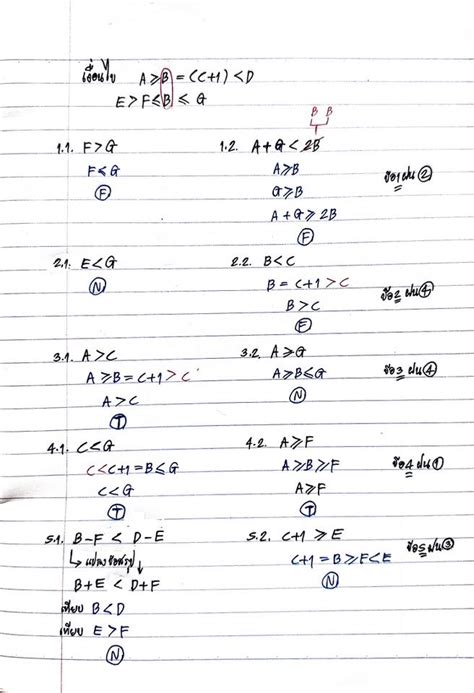 เงื่อนไข A ⩾ B = (C+1) < D
E > F ⩽ B ⩽ G
B B
1.1. F > G 1.2. A + G < 2B
F ⩽ G A ⩾ B
Ⓕ G ⩾ B ข้อ 1 ตอบ ②
A + G ⩾ 2B
Ⓕ
2.1. E < G 2.2. B < C
Ⓝ B = C+1 > C ข้อ 2 ตอบ ④
B > C
Ⓕ
3.1. A > C 3.2. A ⩾ G
A ⩾ B = C+1 > C A ⩾ B ⩽ G ข้อ 3 ตอบ ④
A > C Ⓝ
Ⓣ
4.1. C < G 4.2. A ⩾ F
C < C+1 = B ⩽ G A ⩾ B ⩾ F ข้อ 4 ตอบ ①
C < G A ⩾ F
Ⓣ Ⓣ
5.1. B − F < D − E 5.2. C+1 ⩾ E
↳ แปลงข้อสรุป ↓ C+1 = B ⩾ F < E ข้อ 5 ตอบ ③
B + E < D + F Ⓝ
เทียบ B < D
เทียบ E > F
Ⓝ